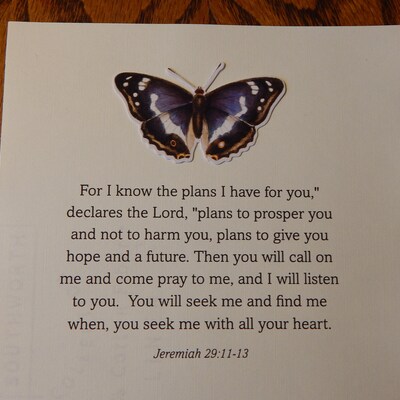 For I know the plans I have for you,"
declares the Lord, "plans to prosper you
and not to harm you, plans to give you
hope and a future. Then you will call on
me and come pray to me, and I will listen
to you.  You will seek me and find me
when, you seek me with all your heart.
Jeremiah 29:11-13